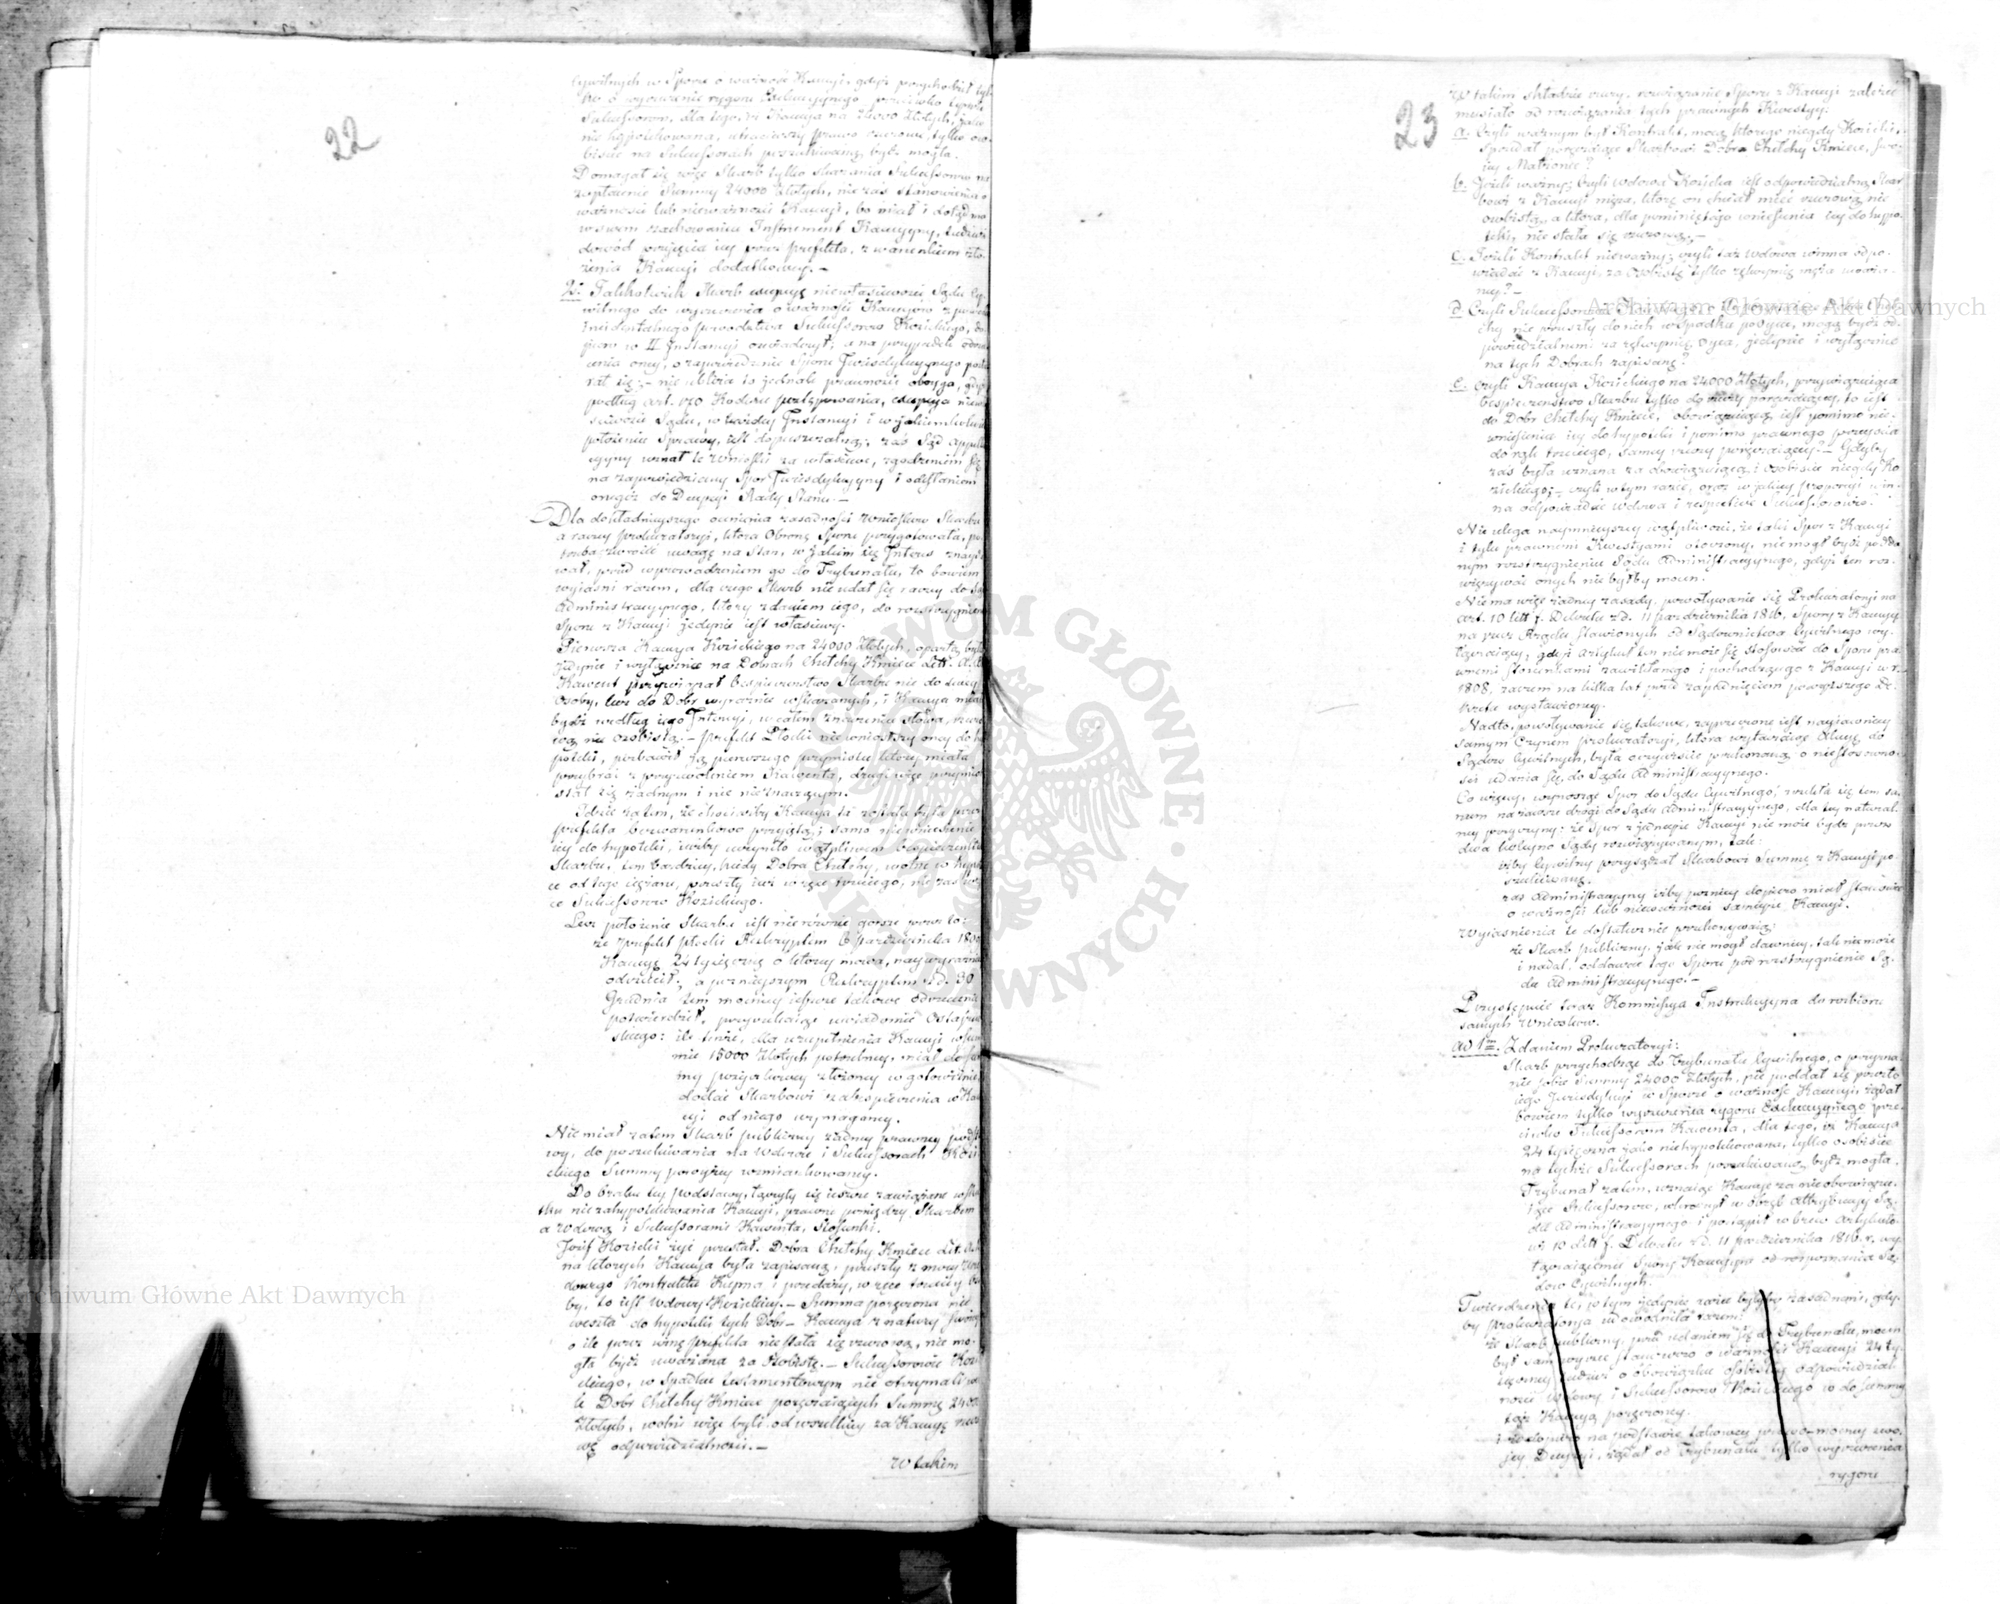 22
cywilnych w Sporze o ważność Kaucyi, gdyż przychodził tyl-
ko o wyrzeczenie rygoru Exekucyinego przeciwko tymże
Sukcessorom, dla tego, iż Kaucya na 24000 Złotych, jako
nie hypotekowana, utraciwszy prawo rzeczowe, tylko oso-
biście na Sukcessorach poszukiwaną być mogła.
Domagał się więc Skarb tylko skazania Sukcessorów na
zapłacenie Summy 24000 Złotych, nie zaś stanowienia o
ważności lub nieważności Kaucyi, bo miał i dotąd ma
w swem zachowaniu Instrument Kaucyiny, tudzież
dowód przyjęcia jey przez Prefekta, z warunkiem zło-
żenia Kaucyi dodatkowey. —
2. Jakkolwiek Skarb excepcyę niewłaściwości Sądu Cy-
wilnego do wyrzeczenia o ważności Kaucyow z powodu
incidentalnego powodztwa Sukcessorow Kozickiego, do-
piero w II Instancyi oświadczył; a na przypadek odrzu-
cenia oney, o zapowiedzenie Sporu Jurisdykcyinego posta-
rał się; — nie ubliża to jednak prawności oboyga, gdyż
podług art. 170 Kodexu postępowania, excepcya niewła-
ściwości Sądu, w każdey Instancyi i w jakiemkolwiek
położeniu Sprawy, iest dopuszczalną; zaś Sąd Appella-
cyiny uznał te wnioski za właściwe, zgodzeniem się
na zapowiedziany Spor Jurisdykcyiny i odesłaniem
onegoż do Decyzyi Rady Stanu. —
Dla dokładnieyszego ocenienia zasadności Wniosków Skarbu
a raczey Prokuratoryi, która Obronę Sporu przygotowała, po-
trzeba zwrócić uwagę na Stan, w jakim się Interes znaydo-
wał, przed wprowadzeniem go do Trybunału, to bowiem
wyjaśni razem, dla czego Skarb nie udał się raczey do Sądu
Administracyinego, który zdaniem jego, do rozstrzygnienia
Sporu z Kaucyi jedynie iest właściwy.
Pierwsza Kaucya Kozickiego na 24000 Złotych, opartą była
jedynie i wyłącznie na Dobrach Chełchy Kmiece Litt. A. B.
Kawent przywiązał bespieczeństwo Skarbu nie do swey
Osoby, lecz do Dobr wyraźnie wskazanych, i Kaucya miała
bydź według iego Intencyi, w całem znaczeniu słowa, rzeczo-
wą nie osobistą. — Prefekt Płocki nie wniosłszy oney do hy-
poteki, pozbawił ją pierwszego przymiotu który miała
przybrać z przyzwoleniem Kawenta, drugi więc przymiot
stał się żadnym i nic nieznaczącym.
Idzie zatem, że chociażby Kaucya ta została była przez
Prefekta bezwarunkowo przyjętą; samo niewniesienie
jey do hypoteki, iużby uczyniło wątpliwem bespieczeństwo
Skarbu, tem bardziey, kiedy Dobra Chełchy, wolne w hypote-
ce od tego ciężaru, przeszły iuż w ręce trzeciego, nie zaś w rę-
ce Sukcessorow Kozickiego.
Lecz położenie Skarbu iest nierównie gorsze przez to:
że Prefekt Płocki Reskryptem 6 Października 180
Kaucyę 24 tysięczną o którey mowa, naywyraźniey
odrzucił, a poźnieyszym Reskryptem z d. 30
Grudnia tem mocniey ieszcze takowe odrzucenie
potwierdził, przyrzekaiąc uwiadomić Ostaszew-
skiego: ile tenże, dla uzupełnienia Kaucyi w Sum-
mie 15000 Złotych potrzebney, miał do Sum-
my pożyczkowey złożoney w gotowiźnie
dodać Skarbowi zabespieczenia w Kau-
cyi od niego wymaganey.
Nie miał zatem Skarb publiczny żadney prawney podsta-
wy, do poszukiwania na Wdowie i Sukcessorach Kozi-
ckiego Summy powyżey wzmiankowaney.
Do braku tey podstawy, łączyły się ieszcze zawiązane w sku-
tku niezahypotekowania Kaucyi, prawne pomiędzy Skarbem
a Wdową i Sukcessorami Kawenta, Stosunki.
Józef Kozicki żyć przestał. Dobra Chełchy Kmiece Lit. A. B.
na których Kaucya była zapisaną, przeszły z mocy Urzę-
dowego Kontraktu Kupna i przedaży, w ręce trzeciey Oso-
by, to iest Wdowy Kozickiey. — Summa poręczona nie
weszła do hypoteki tych Dobr. — Kaucya z natury swoiey
o ile przez winę Prefekta nie stała się rzeczową, nie mo-
gła bydź uważana za Osobistą. — Sukcessorowie Kozi-
ckiego, w Spadku testamentowym nie otrzymali wca-
le Dobr Chełchy Kmiece poręczaiących Summę 24000
Złotych, wolni więc byli od wszelkiey za Kaucyę rzeczo-
wą odpowiedzialności. —
W takim
23
W takim składzie rzeczy, rozwiązanie Sporu z Kaucyi zależeć
musiało od rozwiązania tych prawnych Kwestyy:
a. Czyli ważnym był Kontrakt, mocą którego niegdy Kozicki,
Sprzedał poręczaiące Skarbowi Dobra Chełchy Kmiece, swo-
jey Małżonce?
b. Jeżeli ważny; czyli Wdowa Kozicka iest odpowiedzialną Skar-
bowi z Kaucyi męża, którą on chciał mieć rzeczową nie
osobistą, a która, dla pominiętego wniesienia iey do hypo-
teki, nie stała się rzeczową; —
c. Jeżeli Kontrakt nieważny; czyli taż Wdowa winna odpo-
wiadać z Kaucyi, za Osobistę tylko rękoymię męża uważa-
ney? —
d. Czyli Sukcessorowie Kozickiego, skoro Dobra Cheł-
chy nie przeszły do nich w Spadku po Oycu, mogą bydź od-
powiedzialnemi za rękoymię Oyca, jedynie i wyłącznie
na tych Dobrach zapisaną?
e. Czyli Kaucya Kozickiego na 24000 Złotych, przywiązuiąca
bespieczeństwo Skarbu tylko do rzeczy poręczaiącey, to iest
do Dobr Chełchy Kmiece, obowiązuiącą iest pomimo nie-
wniesienia iey do hypoteki i pomimo prawnego przeyścia
do rąk trzeciego, samey rzeczy poręczaiącey? — Gdyby
zaś była uznana za obowiązuiącą i osobiście niegdy Ko-
zickiego; — czyli w tym razie, oraz w jakiey proporcyi win-
na odpowiadać Wdowa i respective Sukcessorowie?
Nie ulega naymnieyszey wątpliwości, że taki Spor z Kaucyi
i tylu prawnemi Kwestyami otoczony, niemogł bydź podda-
nym rozstrzygnieniu Sądu Administracyinego, gdyż ten roz-
wiązywać onych nie byłby mocen.
Niema więc żadney zasady, powoływanie się Prokuratoryi na
art. 10 litt f. Dekretu z d. 11 Października 1816, Spory z Kaucyy
na rzecz Rządu stawionych od Sądownictwa Cywilnego wy-
łączaiący, gdyż Artykuł ten niemoże się stosować do Sporu pra-
wnemi stosunkami zawikłanego i pochodzącego z Kaucyi w r.
1808, zatem na kilka lat przed zapadnięciem powyższego De-
kretu wystawioney.
Nadto, powoływanie się takowe, zaprzeczone iest nayiawniey
samym Czynem Prokuratoryi, która wytaczaiąc Akcyę do
Sądow Cywilnych, była oczywiście przekonaną o niestosowno-
ści udania się do Sądu Administracyinego.
Co więcey, wynosząc Spor do Sądu Cywilnego, zrzekła się tem sa-
mem na zawsze drogi do Sądu Administracyinego, dla tey natural-
ney przyczyny: że Spor z jedneyże Kaucyi nie może bydź przez
dwa koleyno Sądy rozwiązywanym, tak:
iżby Cywilny przysądzał Skarbowi Summę z Kaucyi po-
szukiwaną.
zaś Administracyiny iżby poźniey dopiero miał stanowić
o ważności lub nieważności samęyże Kaucyi.
Wyjaśnienia te dostatecznie przekonywaią:
że Skarb publiczny, jak nie mogł dawniey, tak nie może
i nadal, oddawać tego Sporu pod rozstrzygnienie Są-
du Administracyinego. —
Przystępuie teraz Kommissya Instrukcyina do rozbioru
samych Wniosków.
ad 1m. Zdaniem Prokuratoryi:
Skarb przychodząc do Trybunału Cywilnego, o przyzna-
nie sobie Summy 24000 Złotych, nie poddał się przez to
iego Jurisdykcyi w Sporze o ważność Kaucyi, żądał
bowiem tylko wyrzeczenia rygoru Exekucyinego prze-
ciwko Sukcessorom Kawenta, dla tego, iż Kaucya
24 tysięczna jako niehypotekowana, tylko osobiście
na tychże Sukcessorach poszukiwaną bydź mogła.
Trybunał zatem, uznaiąc Kaucyę za nieobowiązu-
iącą Sukcessorow, wkroczył w obręb attrybucyi Są-
du Administracyinego i postąpił wbrew Artykuło-
wi 10 Litt f. Dekretu z d. 11 Października 1816 r. wy-
łączaiącemu Spory Kaucyine od rozpoznania Są-
dow Cywilnych.
Twierdzenia te, w tym jedynie razie byłyby zasadnemi, gdy-
by Prokuratorya udowodniła razem:
że Skarb publiczny, przed udaniem się do Trybunału, mocen
był sam wyrzec stanowczo o ważności Kaucyi 24 ty-
sięczney tudzież o obowiązku osobistey odpowiedzial-
ności Wdowy i Sukcessorow Kozickiego co do Summy
tąż Kaucyą poręczoney.
i że dopiero na podstawie takowey prawomocney swo-
jey Decyzyi, żądał od Trybunału tylko wyrzeczenia
rygoru
Archiwum Główne Akt Dawnych
Archiwum Główne Akt Dawnych
ARCHIWUM GŁÓWNE AKT DAWNYCH